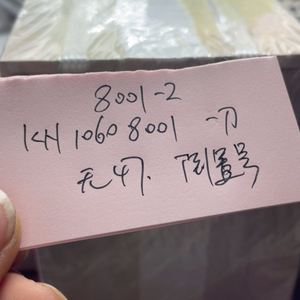 8001-2
KH 1060 8001 一刀
无切.